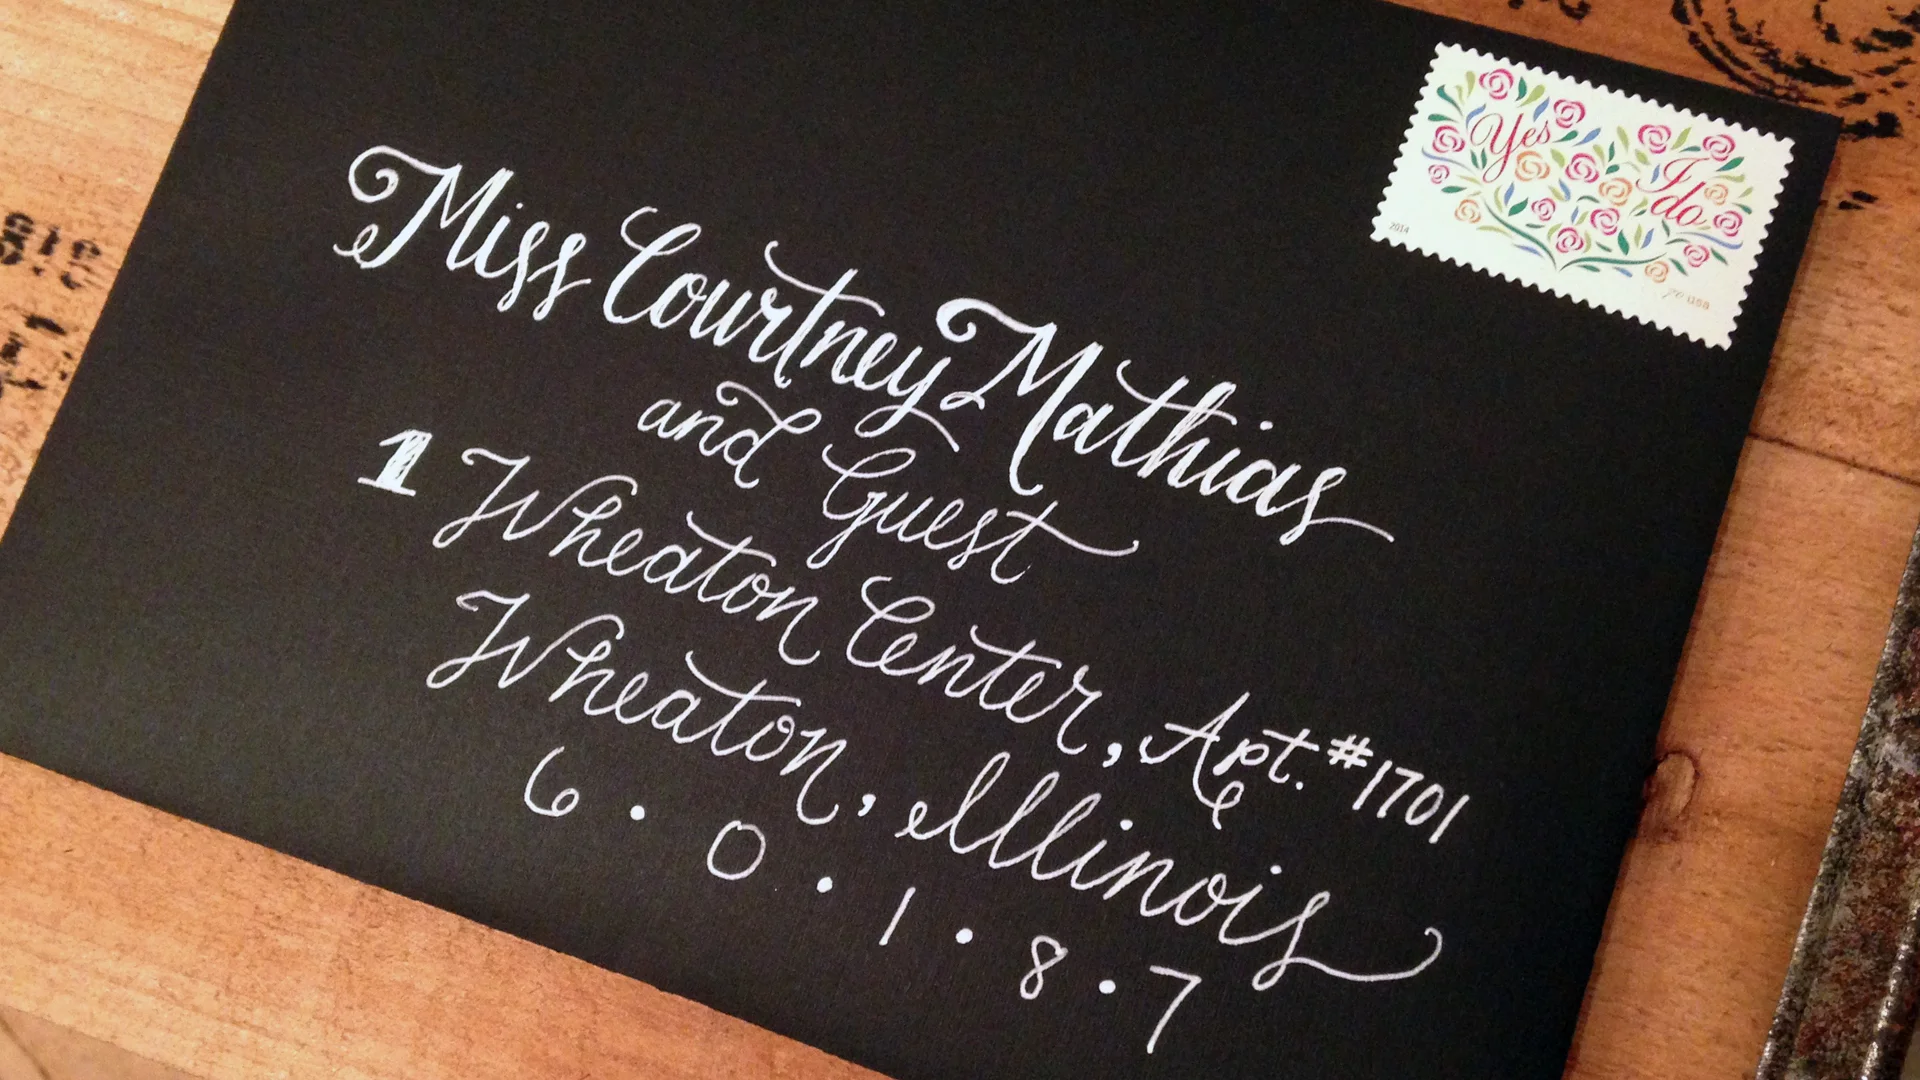 Yes
I do
2014
70 USA
Miss Courtney Mathias
and Guest
1 Wheaton Center, Apt. #1701
Wheaton, Illinois
6 • 0 • 1 • 8 • 7